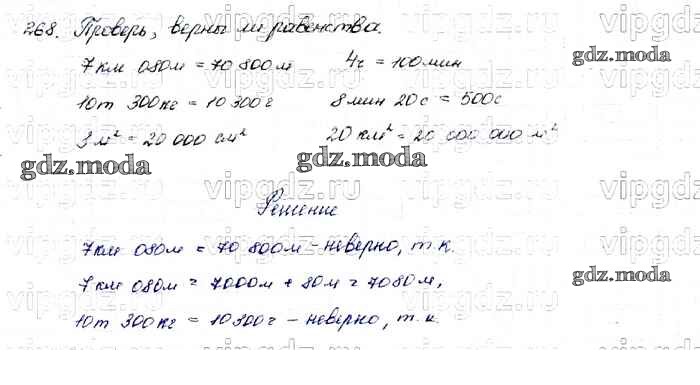 268. Проверь, верны ли равенства.
7 км 080м = 70 800 м 4ч = 100 мин
10т 300кг = 10 300 г 8 мин 20 с = 500с
3 м² = 20 000 см² 20 км² = 20 000 000 м²
Решение
7км 080м = 70 800м - неверно, т.к.
7 км 080м = 7000м + 80м = 7080м,
10т 300кг = 10300г - неверно, т.к.
gdz.moda
gdz.moda
gdz.moda
gdz.moda
vipgdz.ru
vipgdz.ru
vipgdz.ru